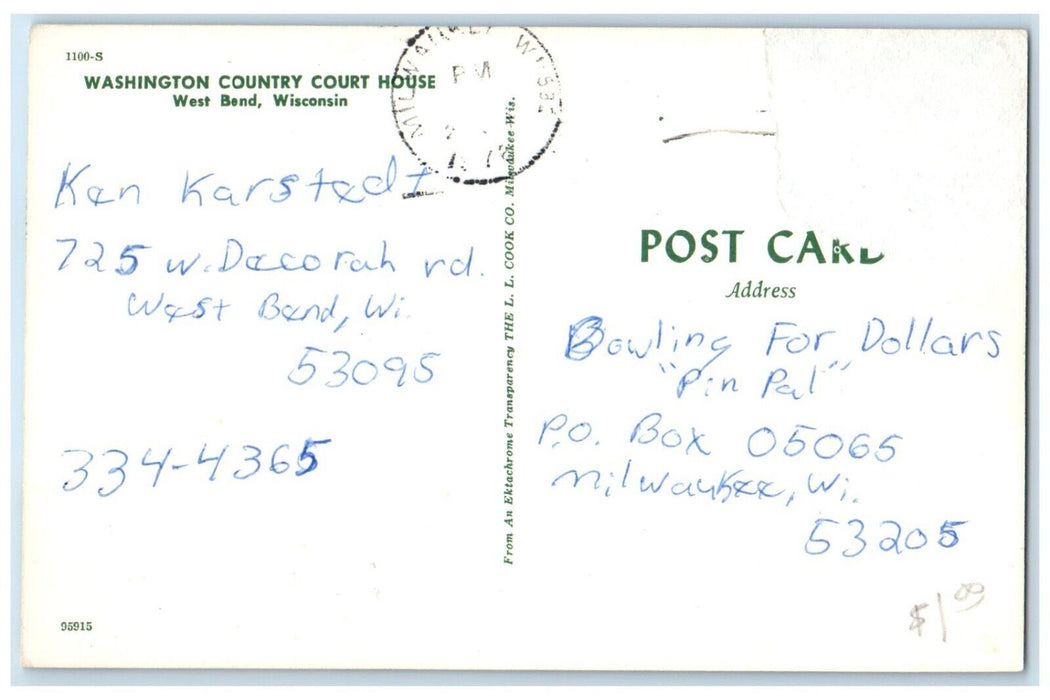 1100-S
WASHINGTON COUNTRY COURT HOUSE
West Bend, Wisconsin
MILWAUKEE WIS
PM
Ken Karstedt
725 W. Decorah rd.
West Bend, Wi.
53095
334-4365
95915
From An Ektachrome Transparency THE L. L. COOK CO. Milwaukee-Wis.
POST CARD
Address
Bowling For Dollars
"Pin Pal"
P.O. Box 05065
Milwaukee, Wi.
53205
$1.00